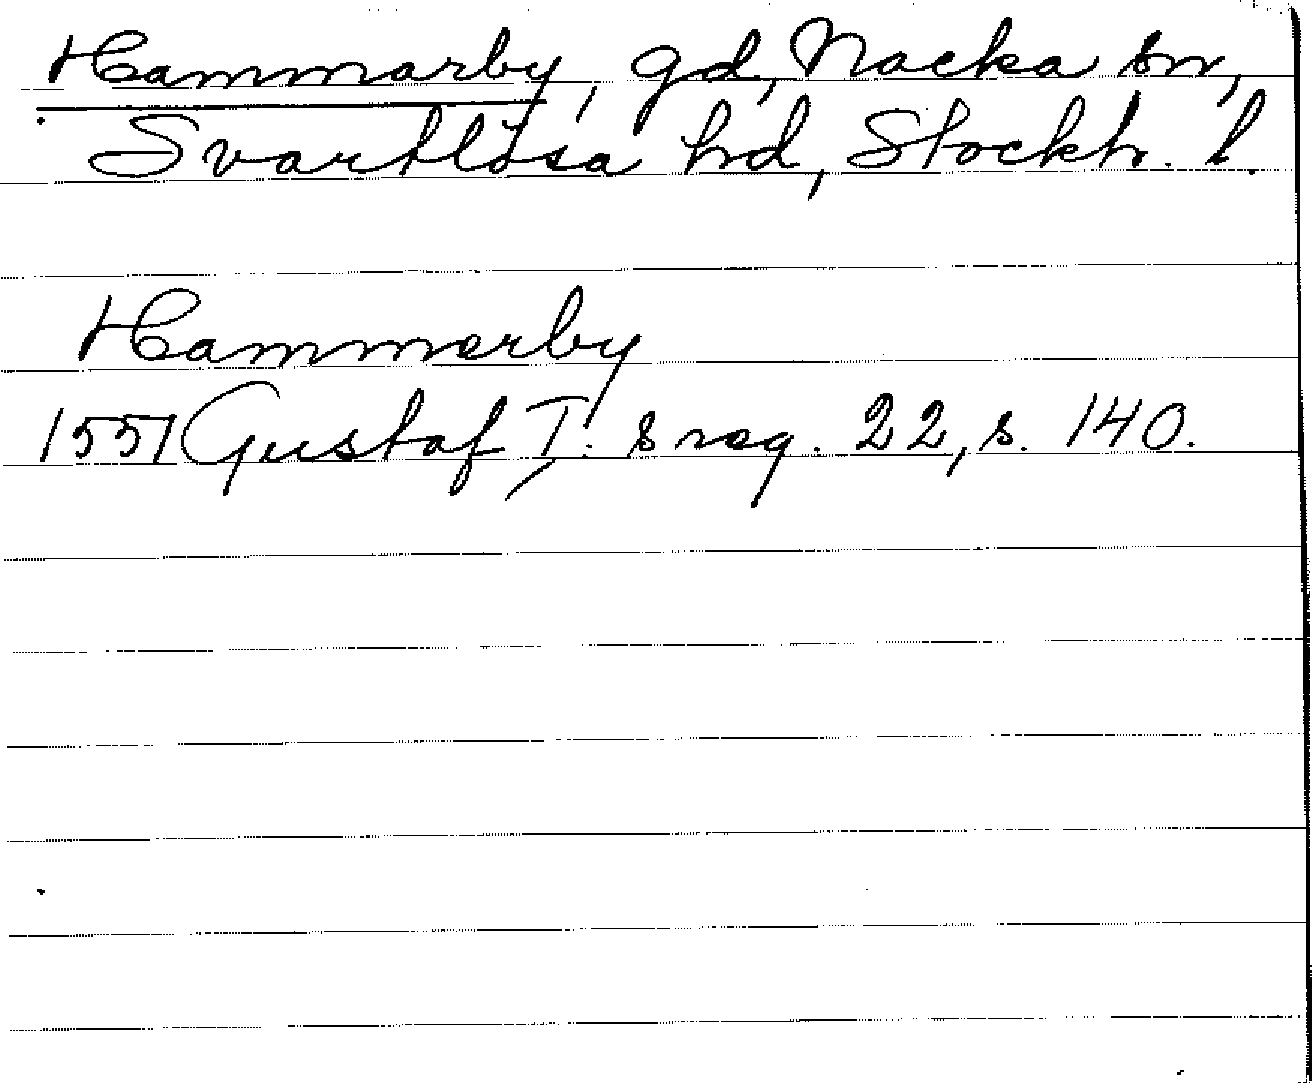 Hammarby, gd, Nacka sn,
Svartlösa hd, Stockh. l.
Hammarby
1551 Gustaf I:s reg. 22, s. 140.